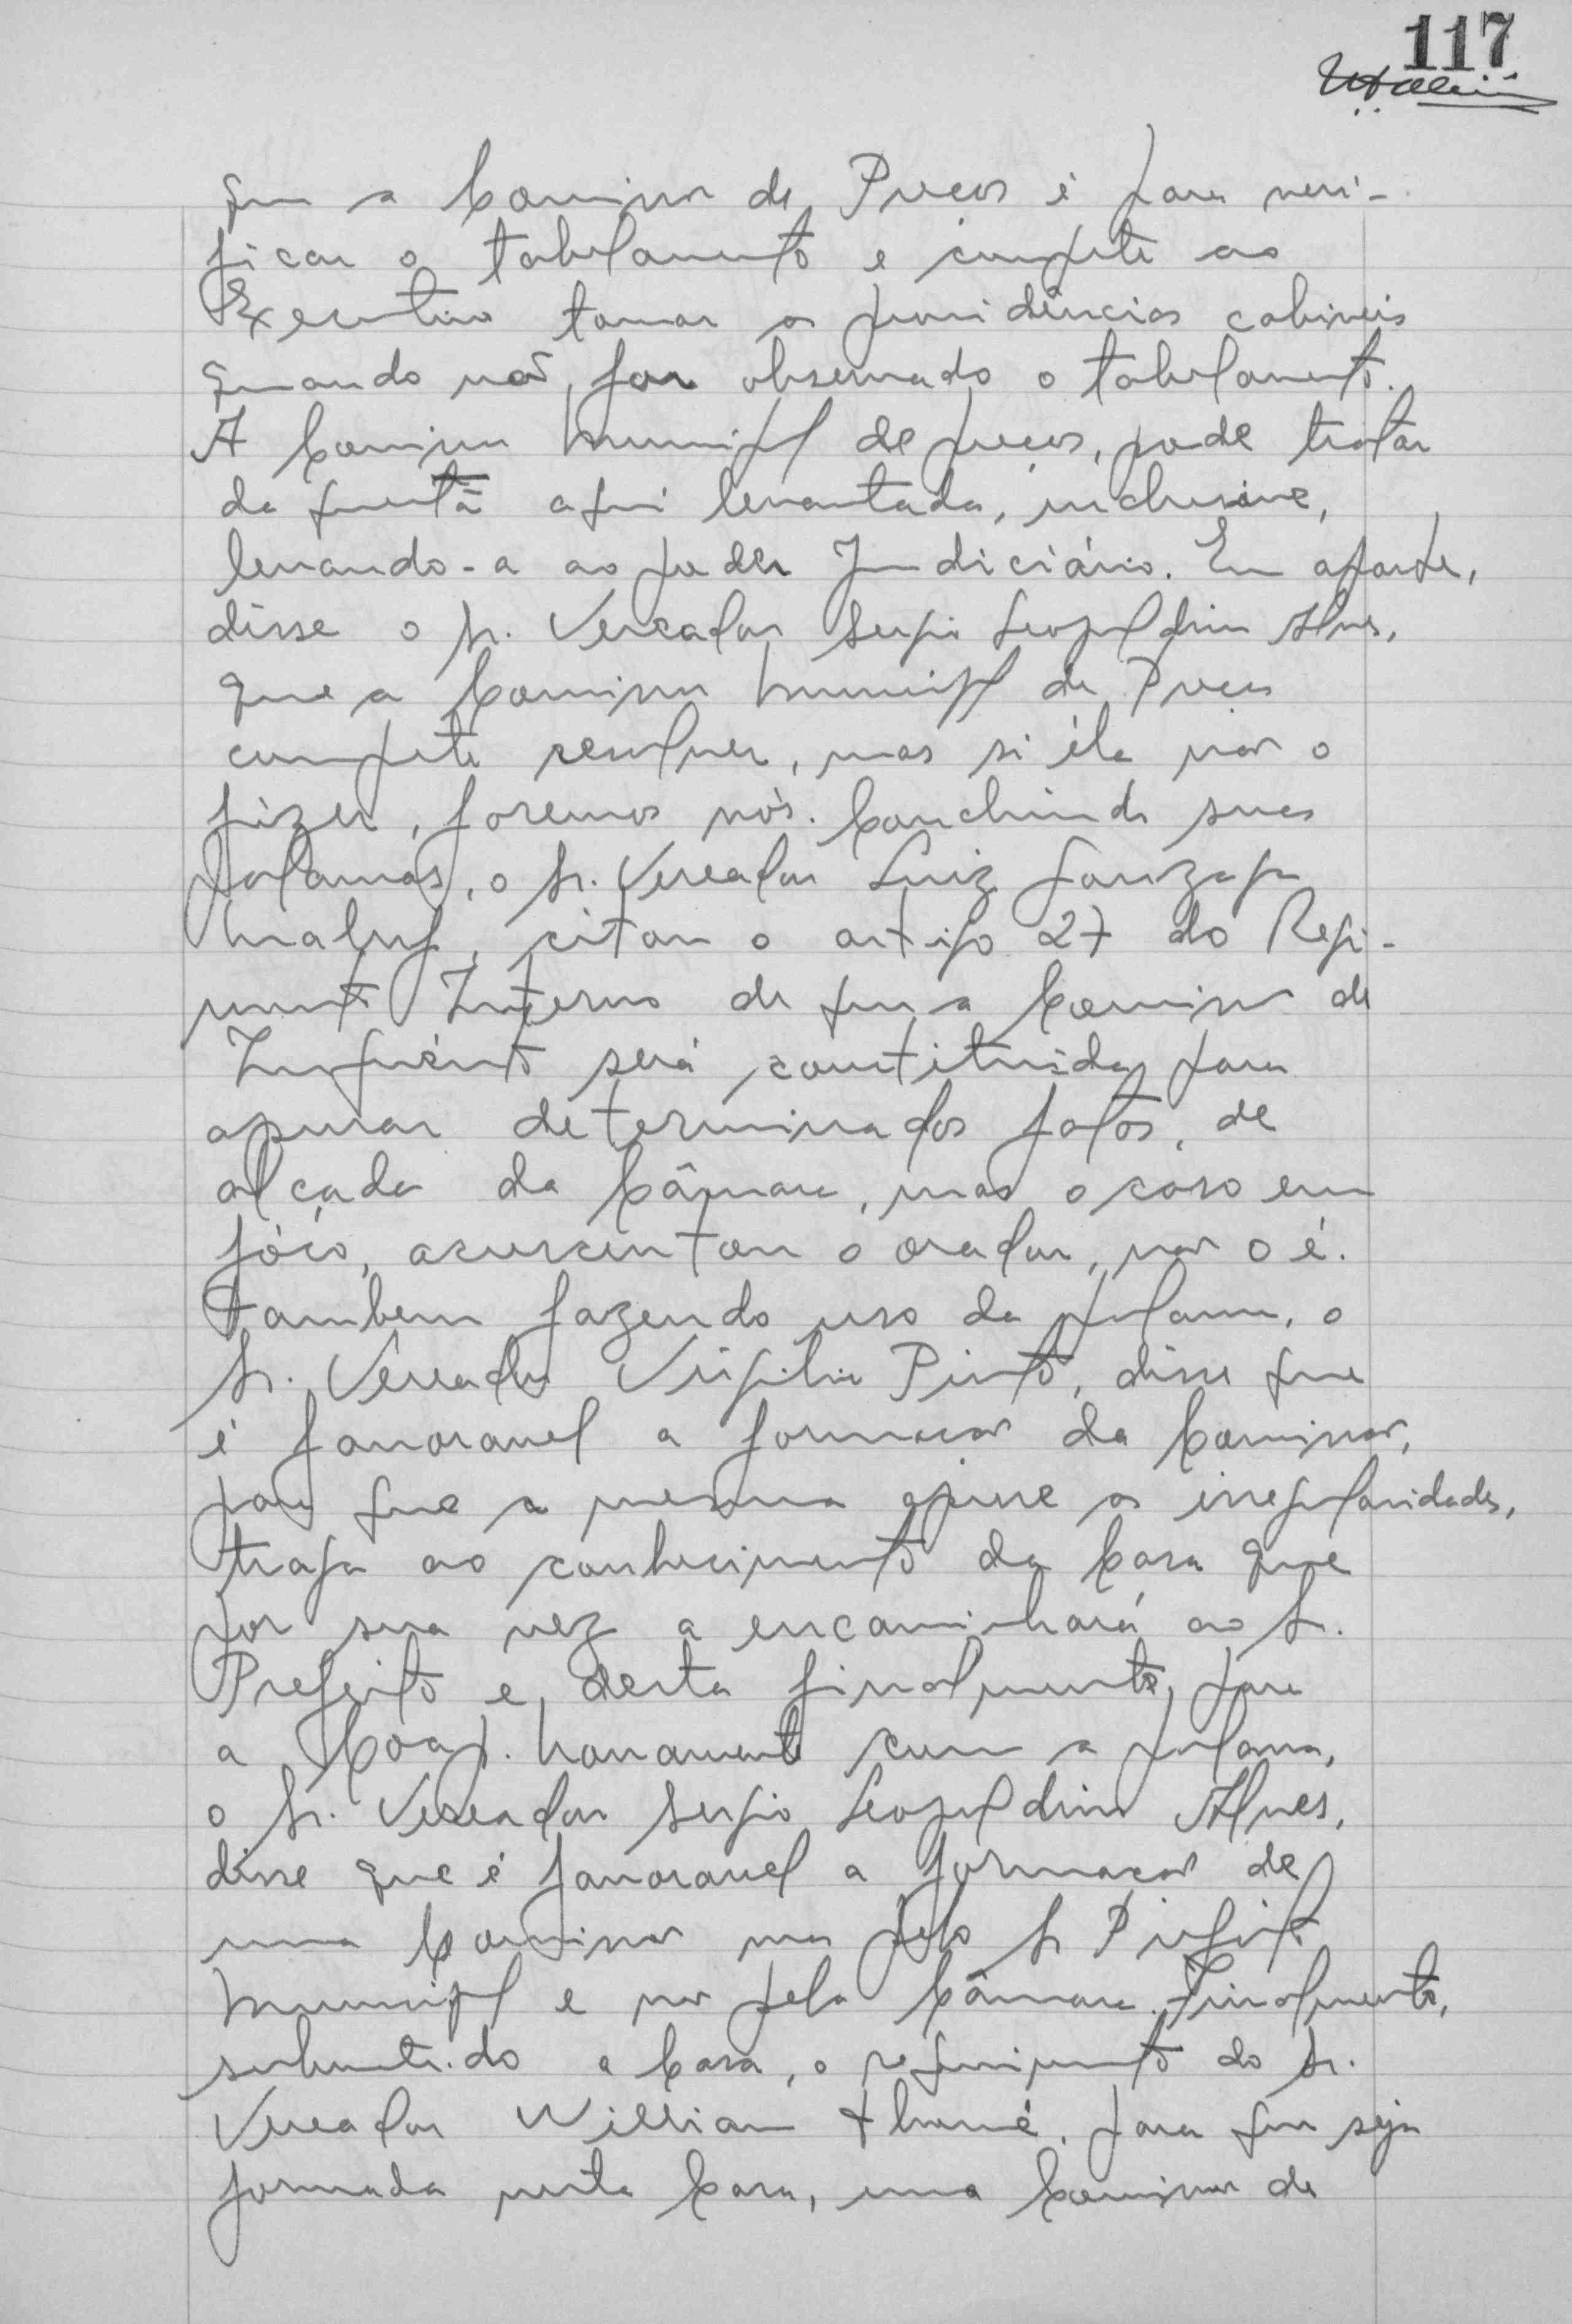 117
que a Comissão de Preços é para veri-
ficar o tabelamento e compete ao
Executivo tomar as providências cabiveis
quando não for observado o tabelamento.
A Comissão Municipal de preços, pode tratar
da questã aqui levantada, inclusive,
levando-a ao poder Judiciário. Em aparte,
disse o Sr. Vereador Sergio Leopoldino Alves,
que a Comissão Municipal de Preços
compete resolver, mas si éla não o
fizer, faremos nós. Concluindo suas
palavras, o Sr. Vereador Luiz Gonzaga
Maluf, citou o artigo 27 do Regi-
mento Interno de que a Comissão de
Inquérito será constituida para
apurar determinados fatos, de
alçada da Câmara, mas o caso em
fóco, acrescentou o orador, não o é.
Tambem fazendo uso da palavra, o
Sr. Vereador Virgilio Pinto, disse que
é favoravel a formação da Comissão,
para que a mesma apure as irregularidades,
traga ao conhecimento da Casa que
por sua vez a encaminhará ao Sr.
Prefeito e, desta finalmente, para
a Coap. Novamente com a palavra,
o Sr. Vereador Sergio Leopoldino Alves,
disse que é favoravel a formação de
uma Comissão mas pelo Sr Prefeito
Municipal e não pela Câmara. Finalmente,
submetido a Casa, o requerimento do Sr.
Vereador William Thomé, para que seja
formada nesta Casa, uma Comissão de